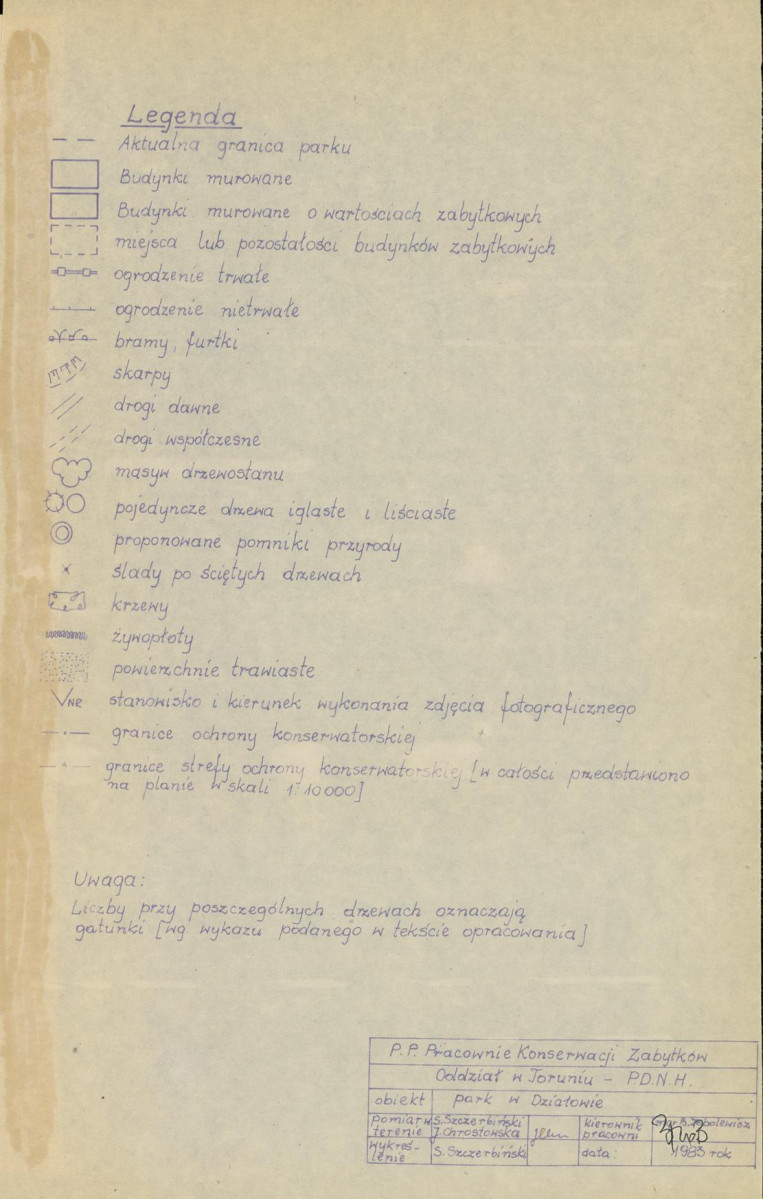 Legenda
Aktualna granica parku
Budynki murowane
Budynki murowane o wartościach zabytkowych
miejsca lub pozostałości budynków zabytkowych
ogrodzenie trwałe
ogrodzenie nietrwałe
bramy, furtki
skarpy
drogi dawne
drogi współczesne
masyw drzewostanu
pojedyncze drzewa iglaste i liściaste
proponowane pomniki przyrody
ślady po ściętych drzewach
krzewy
żywopłoty
powierzchnie trawiaste
VNR stanowisko i kierunek wykonania zdjęcia fotograficznego
granice ochrony konserwatorskiej
granice strefy ochrony konserwatorskiej [w całości przedstawiono
na planie w skali 1:10000]
Uwaga:
Liczby przy poszczególnych drzewach oznaczają
gatunki [wg. wykazu podanego w tekście opracowania]
P.P. Pracownie Konserwacji Zabytków
Oddział w Toruniu - P.D.N.H.
obiekt park w Działowie
pomiar w terenie S. Szczerbiński J. Chrostowska kierownik pracowni
wykreślenie S. Szczerbiński data: 1983 rok